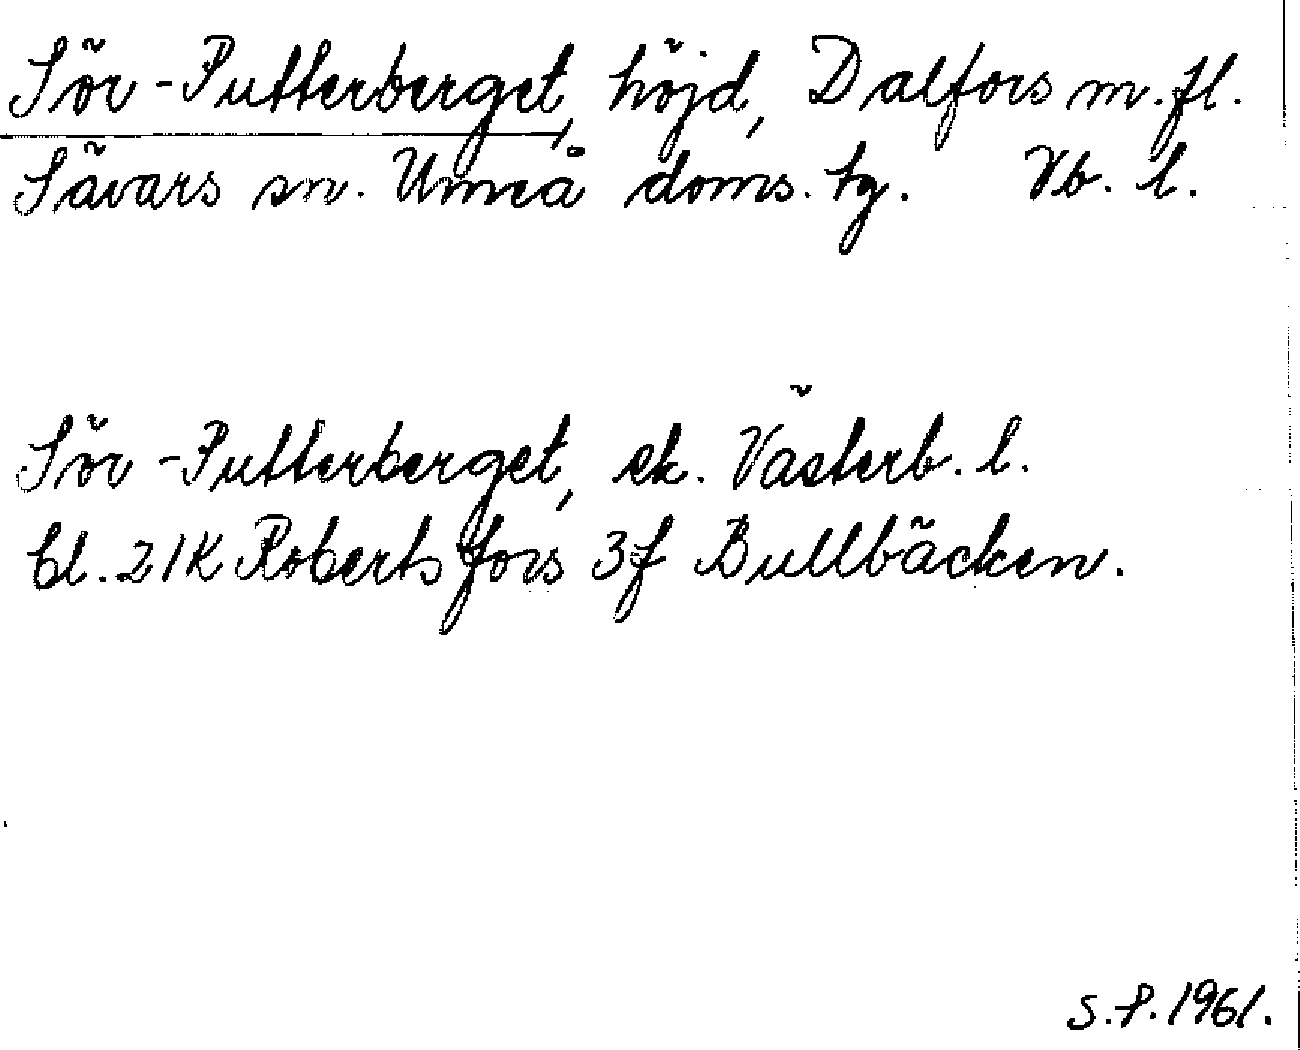 Sör-Putterberget, höjd, Dalfors m.fl.
Sävars sn. Umeå doms. tg. Vb. l.
Sör-Putterberget, ek. Västerb. l.
bl. 21K Robertsfors 3f Bullbäcken.
S.P. 1961.